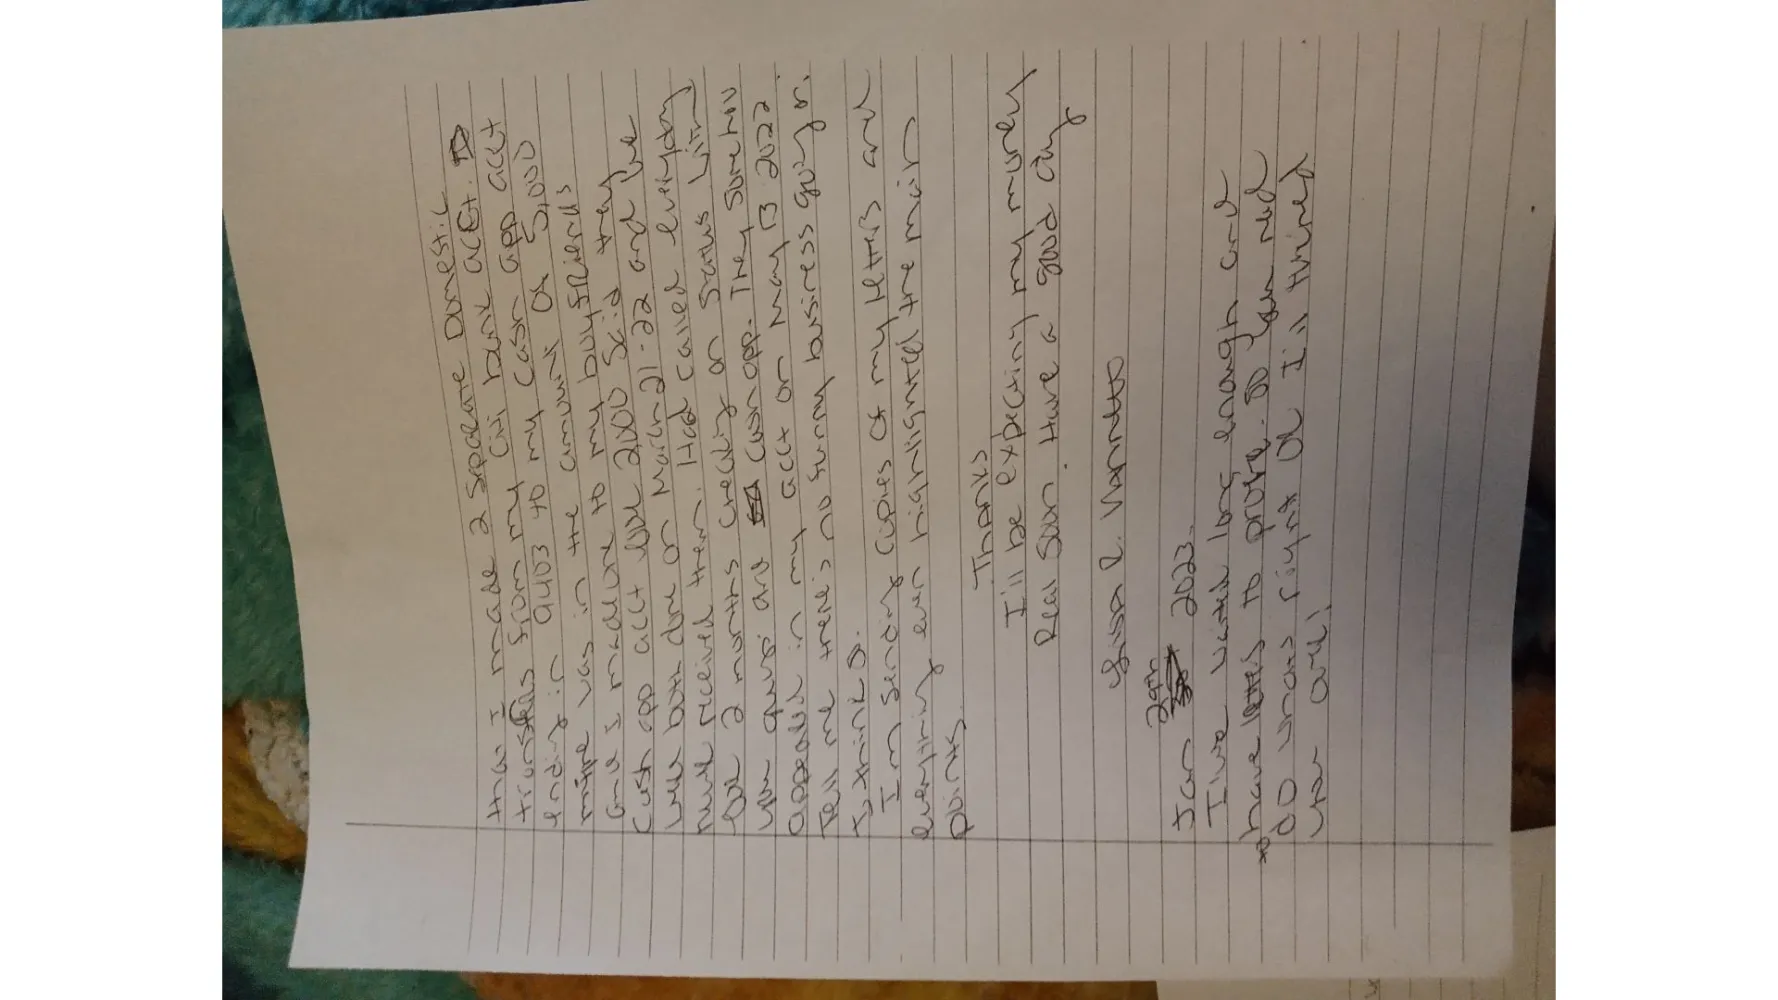 that I made 2 seperate Domestic
transfers from my Citi bank acct.
ending in 9403 to my cash app acct
mine was in the amount of 5,000
and I made one to my boyfriends
Cash app acct was 2,000 said they
were both done on March 21-22 and we
never received them. Had called everyday
for 2 months checking on status with
you guys and cash app. They somehow
appeared in my acct on May 13 2022.
Tell me there's no funny business going on.
I think so.
I'm sending copies of my letters and
everything even highlighted the main
points.
Thanks
I'll be expecting my money
Real Soon. Have a good day
R.
Jan 29th 2023.
I have waited long enough and
have letters to prove. so you need
to do whats right or I'll